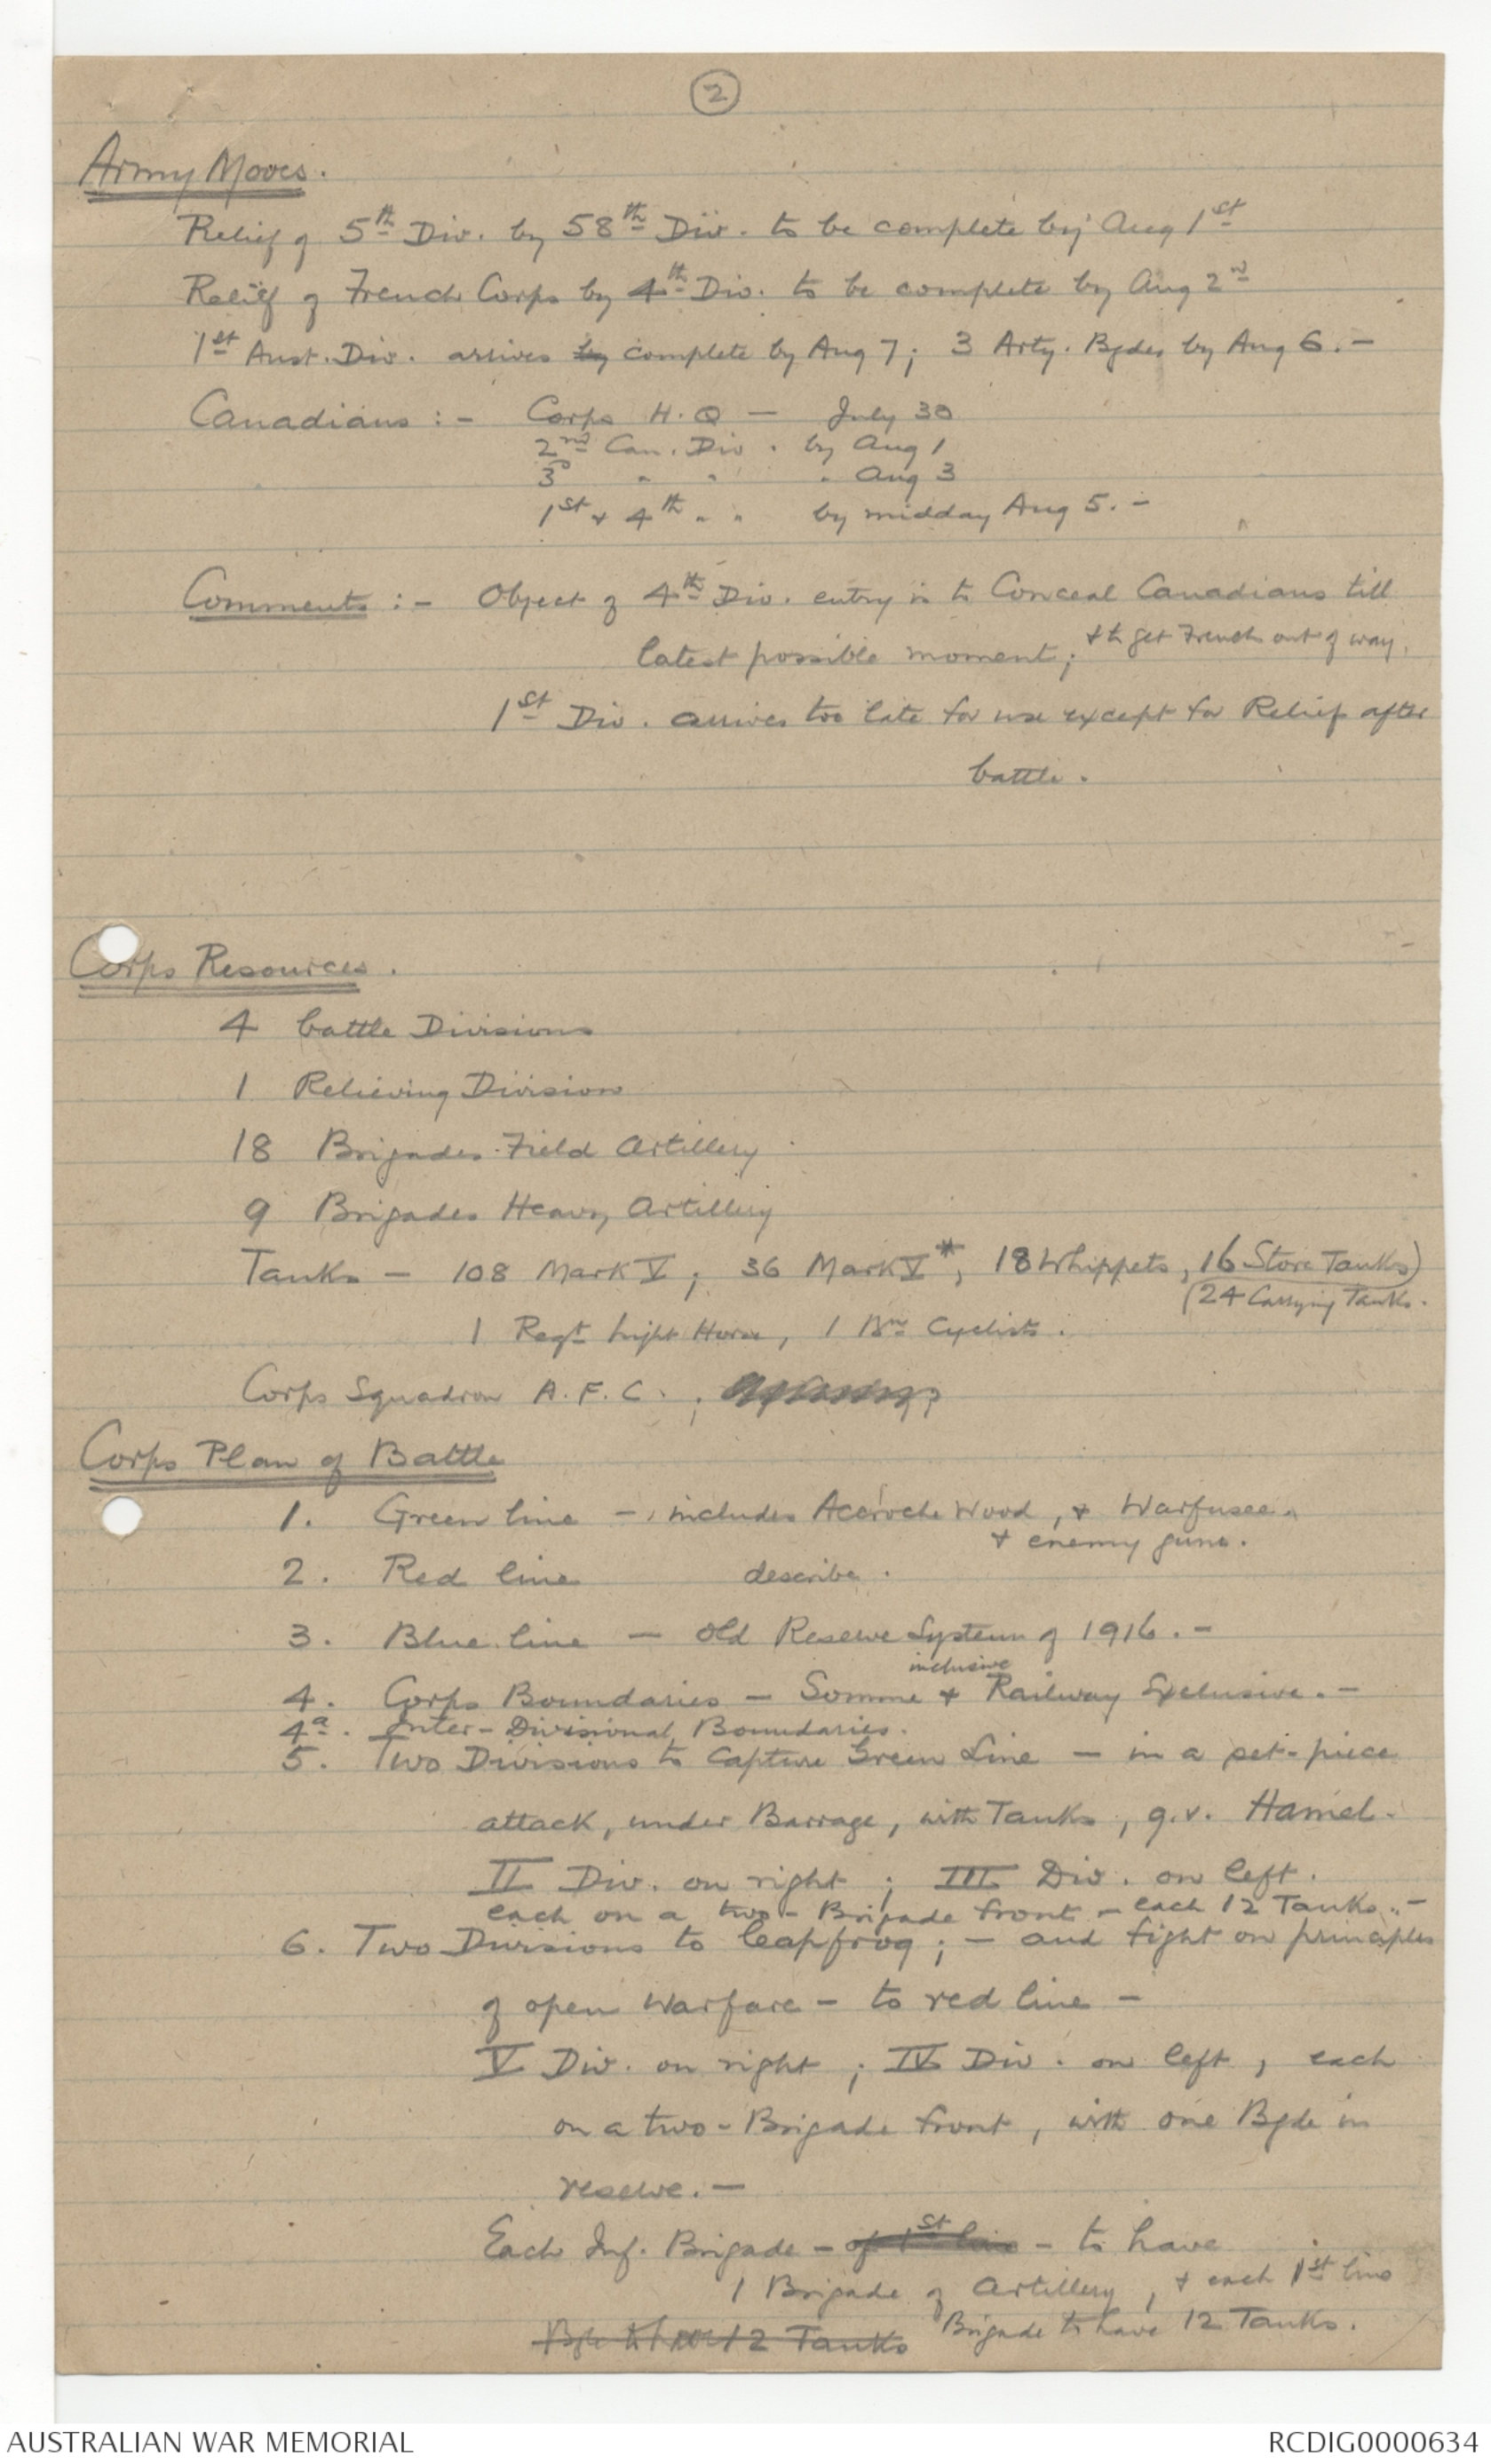 2
Army Moves.
Relief of 5th Div. by 58th Div. to be complete by Aug 1st
Relief of French Corps by 4th Div. to be complete by Aug 2nd
1st Aust. Div. arrives by complete by Aug 7; 3 Arty. Bgdes by Aug 6. -
Canadians :- Corps H.Q - July 30
2nd Can. Div. by Aug 1
3rd " " " Aug 3
1st & 4th " " by midday Aug 5. -
Comments :- Object of 4th Div. entry is to Conceal Canadians till
latest possible moment; & to get French out of way.
1st Div. arrives too late for use except for Relief after
battle.
Corps Resources.
4 battle Divisions
1 Relieving Division
18 Brigades Field Artillery
9 Brigades Heavy Artillery
Tanks - 108 Mark V; 36 Mark V*, 18 Whippets, 16 Store Tanks)
(24 Carrying Tanks.
1 Regt Light Horse, 1 Bn Cyclists.
Corps Squadron A.F.C. ;
Corps Plan of Battle
1. Green line - includes Accroche Wood, & Warfusee
& enemy guns.
2. Red line describe.
3. Blue line - old Reserve System of 1916. -
inclusive
4. Corps Boundaries - Somme & Railway Exclusive. -
4a. Inter-Divisional Boundaries.
5. Two Divisions to Capture Green Line - in a set-piece
attack, under Barrage, with Tanks, q.v. Hamel.
II Div. on right ; III Div. on left.
each on a two-Brigade front - each 12 Tanks. -
6. Two Divisions to leapfrog ; - and fight on principles
of open Warfare - to red line -
V Div. on right ; IV Div. on left, each
on a two-Brigade front, with one Bgde in
reserve. -
Each Inf. Brigade - of 1st line - to have
1 Brigade of Artillery, & each 1st line
12 Tanks Brigade to have 12 Tanks.
AUSTRALIAN WAR MEMORIAL RCDIG0000634